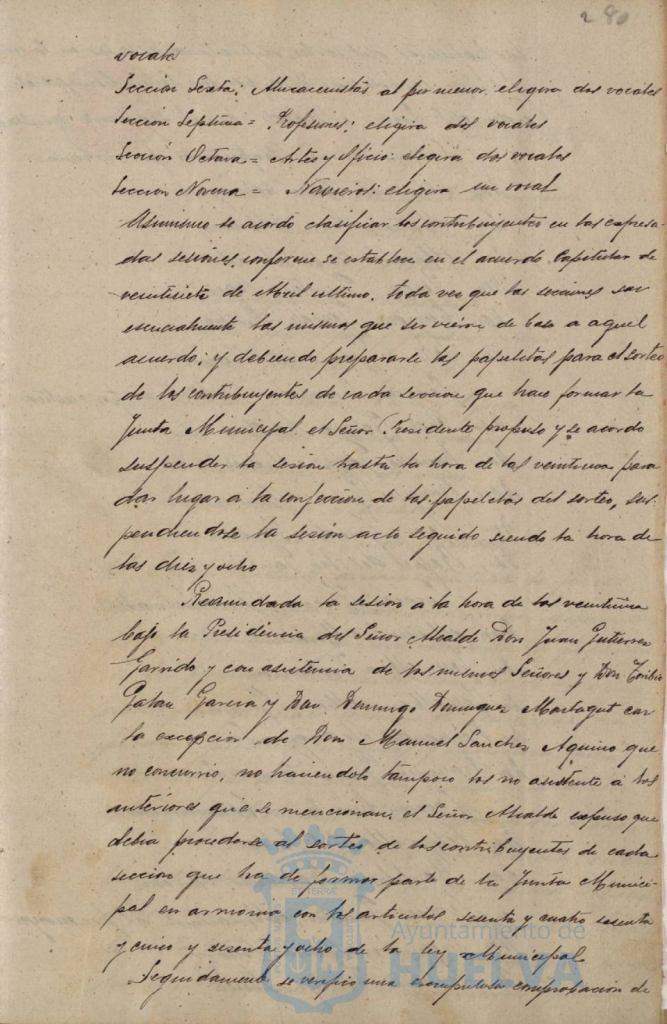 280
vocale
Sección Sexta: Almacenistas al por menor: eligira dos vocales
Sección Septima = Profesiones: eligira dos vocales
Sección Octava = Artes y Oficio: elegira dos vocales
Sección Novena = Navieros: eligira un vocal
Asimismo se acordo clasificar los contribuyentes en las expresa-
das sesiones, conforme se establece en el acuerdo Capitular de
veintisiete de Abril ultimo, toda vez que las secciones son
esencialmente las mismas que sirvieron de base a aquel
acuerdo; y debiendo prepararse las papeletas para el sorteo
de los contribuyentes de cada seccion que han formar la
Junta Municipal, el Señor Presidente propuso y se acordo
suspender la sesion hasta la hora de las veintiuna para
dar lugar á la confeccion de las papeletas del sorteo, sus-
pendiendose la sesión acto seguido siendo la hora de
las diez y ocho
Reanudada la sesion á la hora de las veintiuna
bajo la Presidencia del Señor Alcalde Don Juan Gutierrez
Garrido y con asistencia de los mismos Señores y Don Toribio
Galan Garcia y Don Domingo Dominguez Mortagut con
la excepcion de Don Manuel Sanchez Aquino que
no concurrio, no haciendolo tampoco los no asistente á los
anteriores que se mencionan, el Señor Alcalde expuso que
debia procederse al sorteo de los contribuyentes de cada
seccion que ha de formar parte de la Junta Munici-
pal en armonia con los articulos sesenta y cuatro sesenta
y cinco y sesenta y ocho de la ley Municipal
Seguidamente se verificó una escrupulosa comprobacion de
Ayuntamiento de
HUELVA